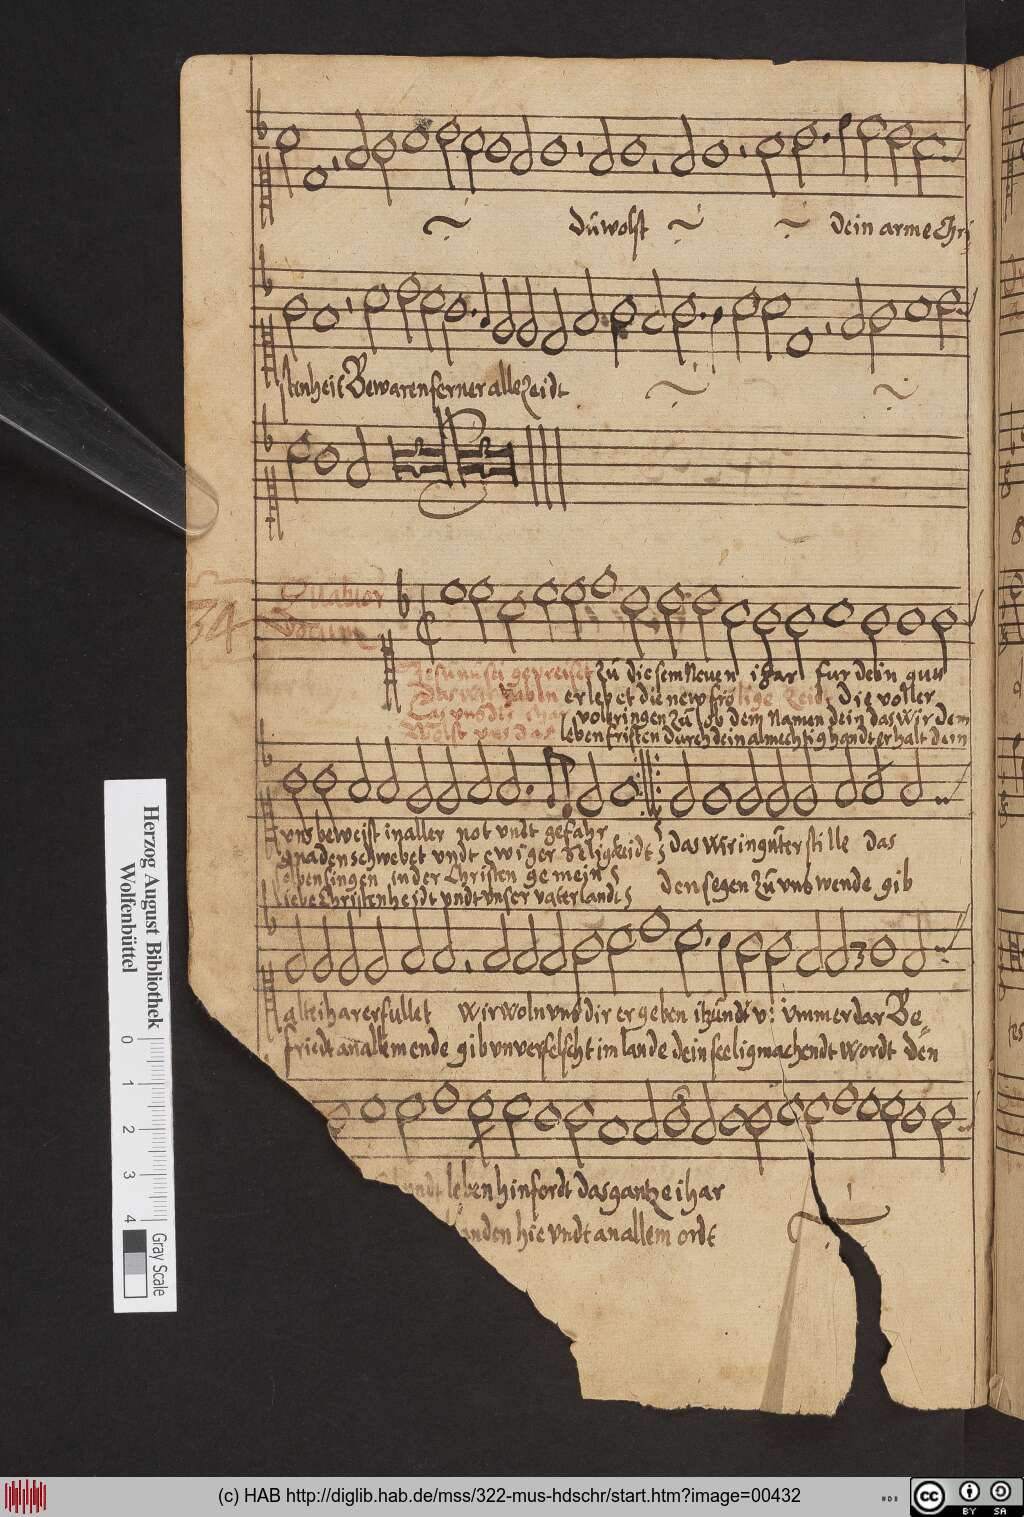 dů wolst dein arme Chri
stenheit Bewaren ferner alle zeidt
34
Quatuor
Vocum
Jesu nu sei gepreiset zů diesem Neuen ihar fur dein guu
erlebet die new frolige Zeidt Die voller
volbringen zů lob dem Namen dein das Wir dem
Wolst uns das leben fristen Durch dein almechtig handt erhalt dein
uns beweist in aller not undt gefahr
gnaden schwebet undt ewiger seligkeidt
das Wir in gůter stille das
singen in der Christen gemein
den segen zů uns wende gib
liebe Christenheidt undt unser vaterlandt
alte ihar erfullet Wir Woln uns dir ergeben itzundt v: ummerdar Be
friedt an allem ende gib unverfelscht im lande dein seeligmachendt Wordt den
undt leben hinfordt das gantze ihar
hie undt an allem ordt
Herzog August Bibliothek
Wolfenbüttel
0 1 2 3 4
Gray Scale
(c) HAB http://diglib.hab.de/mss/322-mus-hdschr/start.htm?image=00432
cc
BY SA